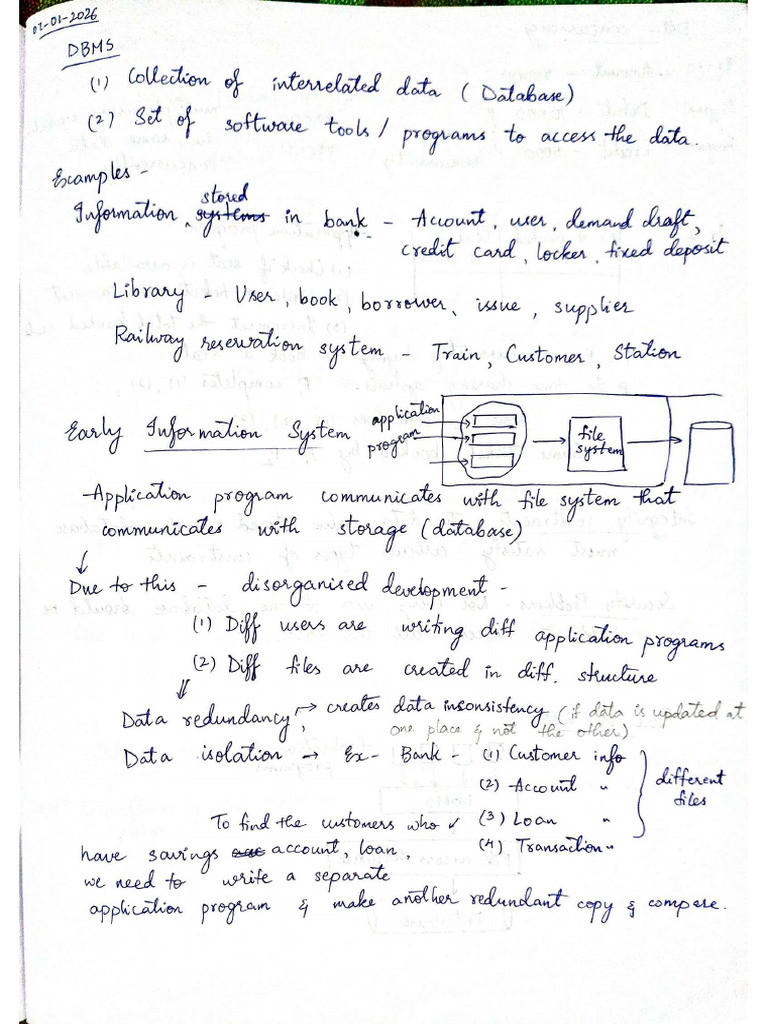 02-01-2026
DBMS
(1) Collection of interrelated data (Database)
(2) Set of software tools / programs to access the data.
Examples -
stored
Information systems in bank - Account, user, demand draft,
credit card, locker, fixed deposit
Library - User, book, borrower, issue, supplier
Railway reservation system - Train, Customer, Station
Early Information System
application
program
file
system
- Application program communicates with file system that
communicates with storage (database)
Due to this - disorganised development -
(1) Diff users are writing diff application programs
(2) Diff files are created in diff. structure
Data redundancy, → creates data inconsistency (if data is updated at
one place & not the other)
Data isolation → Ex - Bank - (1) Customer info
(2) Account "
different
files
(3) Loan "
(4) Transaction "
To find the customers who
have savings account, loan,
we need to write a separate
application program & make another redundant copy & compare.